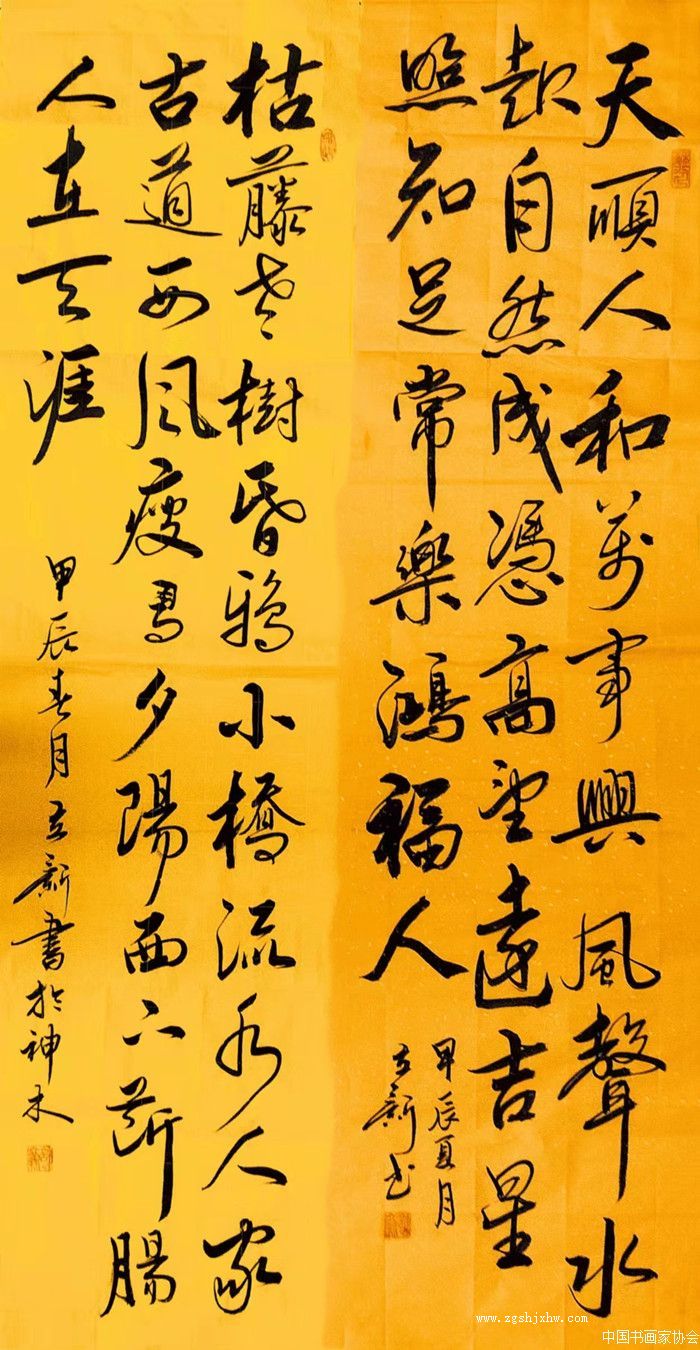 天順人和萬事興風聲水
起自然成憑高望遠吉星
照知足常樂鴻福人
甲辰夏月
新书
枯藤老樹昏鴉小橋流水人家
古道西風瘦馬夕陽西下断腸
人在天涯
甲辰春月新書於神木
www.zgshjxhw.com
中国书画家协会